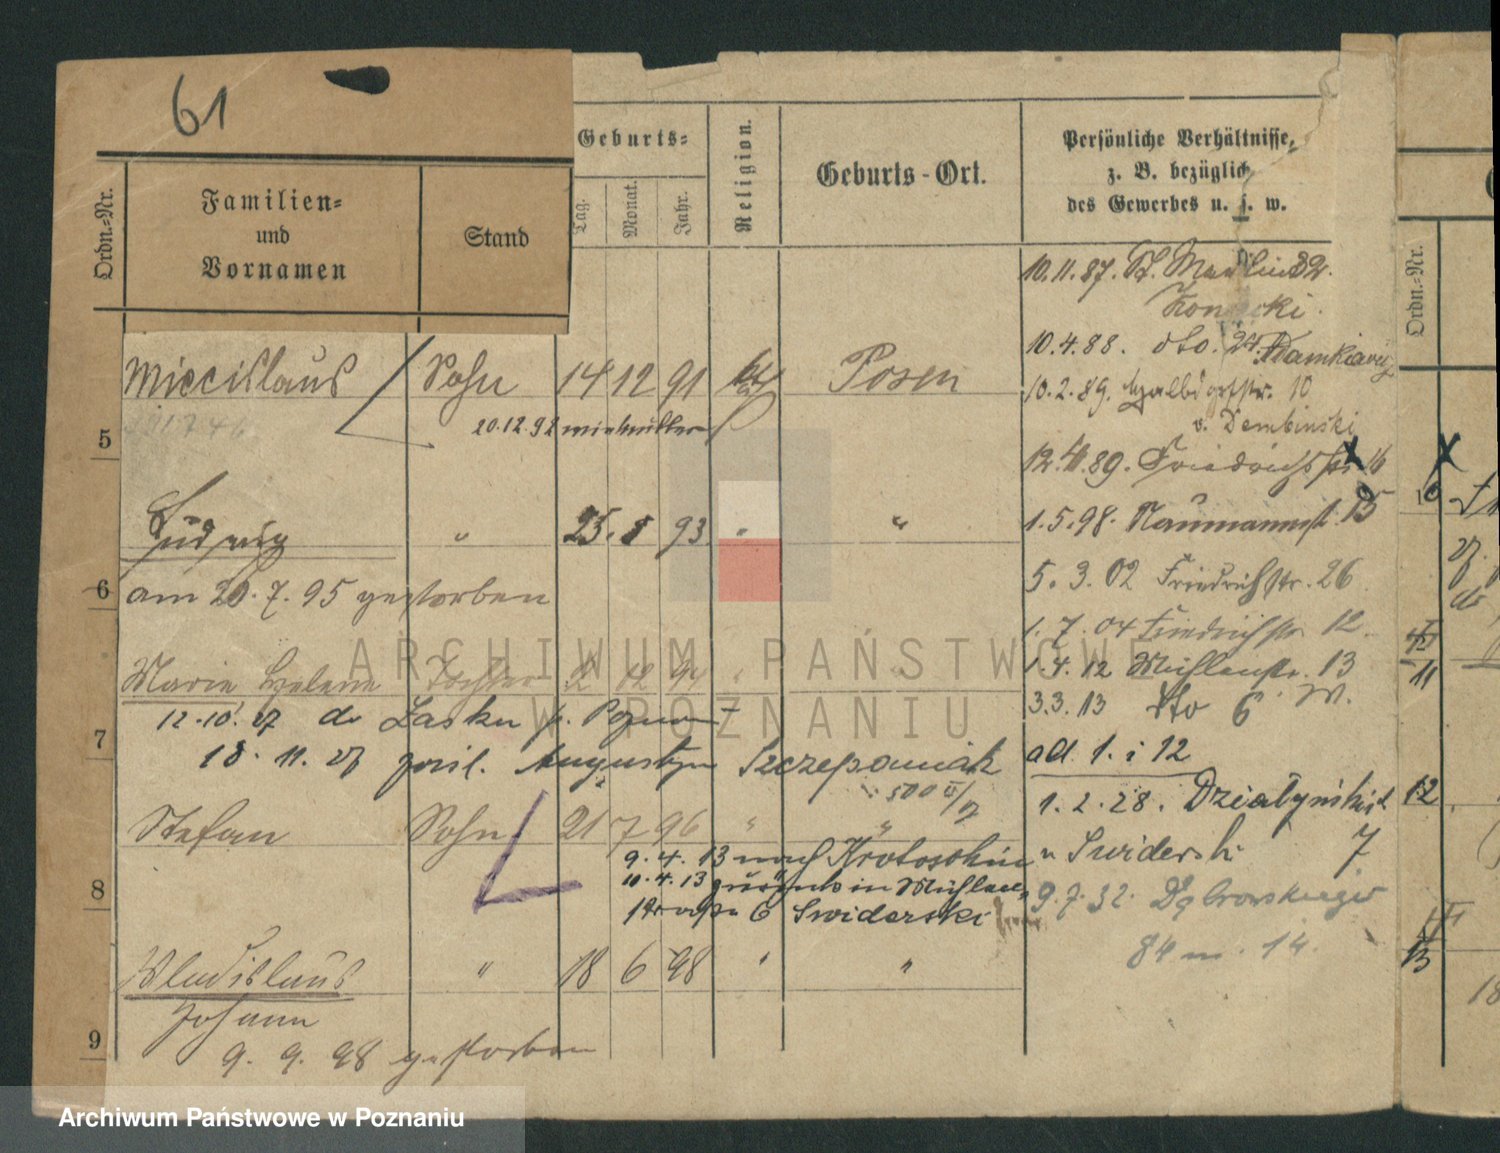 61
Ordn.-Nr.
Familien-
und
Vornamen
Stand
Geburts-
Tag.
Monat.
Jahr.
Religion.
Geburts-Ort.
Persönliche Verhältnisse,
z. B. bezüglich
des Gewerbes u. s. w.
Ordn.-Nr.
10.11.87. St. Martin 32.
10.4.88. dto.
Miecislaus Sohn 14 12 91 Posen
10.2.89. Halbdorfstr. 10
v. Dembinski
20.12.92
5
12.11.89. Friedrichstr. 16
Ludwig " 25. 8 93 " "
1.5.98. Naumannstr. 15
6
am 20.7.95 gestorben
5.3.02 Friedrichstr. 26
1.7.04 Friedrichstr. 12.
Marie Helene Tochter 2 12 94 "
1.4.12 Mühlenstr. 13
12.10.27 do Lasku p. Poznań
3.3.13 dto 6 W.
7
18.11.27 Augustyn Szczepaniak
ad. 1. i 12
1.2.28. Działyńskich
Stefan Sohn 21 7 96 " "
9.4.13 nach Krotoschin
u Swiderski 7
8
10.4.13 zurück in Mühlen-
strasse 6 Swiderski
9.7.32. Dąbrowskiego
84 m. 14.
Wladislaus " 18 6 98 " "
Johann
9
9.9.98 gestorben
10
11
12
13
ARCHIWUM PAŃSTWOWE
W POZNANIU
Archiwum Państwowe w Poznaniu